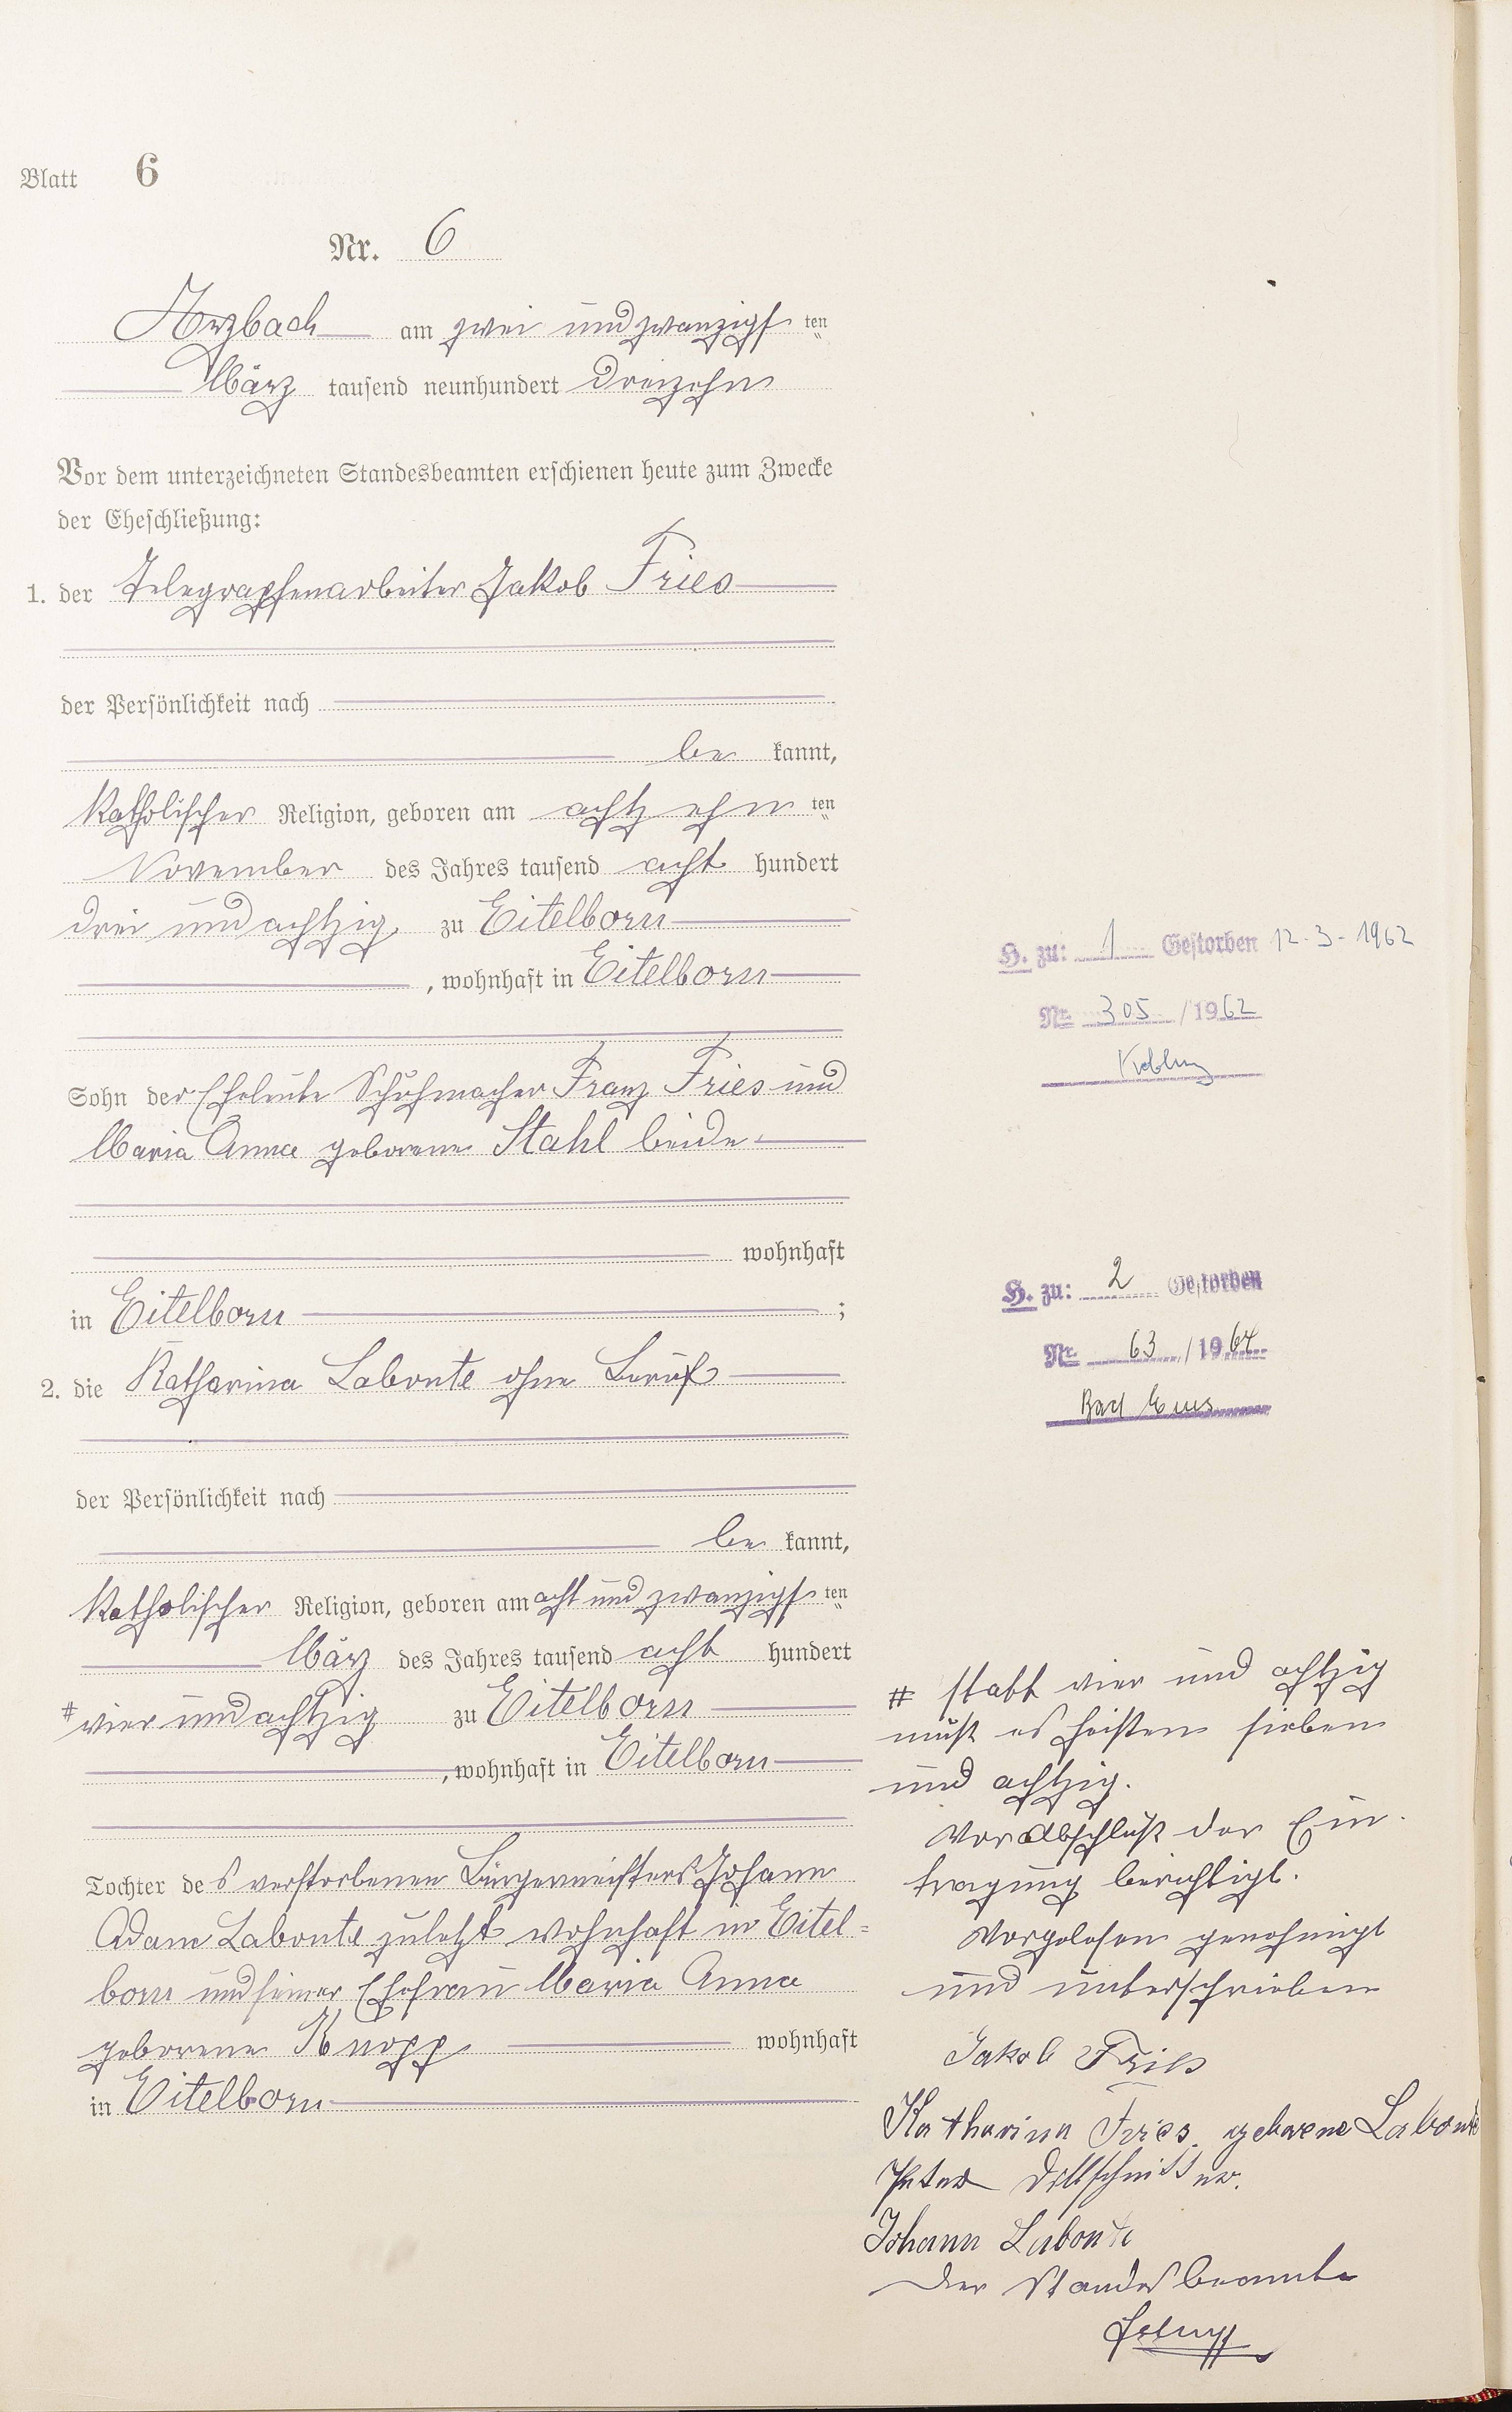 Blatt 6
Nr. 6
Arzbach am zwei und zwanzigsten
März tausend neunhundert dreizehn
Vor dem unterzeichneten Standesbeamten erschienen heute zum Zwecke
der Eheschließung:
1. der Telegraphenarbeiter Jakob Fries
der Persönlichkeit nach
be kannt,
katholischer Religion, geboren am achtzehn ten
November des Jahres tausend acht hundert
drei und achtzig zu Eitelborn
, wohnhaft in Eitelborn
Sohn der Eheleute Schuhmacher Franz Fries und
Maria Anna geborene Stahl beide
wohnhaft
in Eitelborn ;
2. die Katharina Labonte ohne Beruf
der Persönlichkeit nach
be kannt,
katholischer Religion, geboren am acht und zwanzigsten
März des Jahres tausend acht hundert
# vier und achtzig zu Eitelborn
, wohnhaft in Eitelborn
Tochter des verstorbenen Bürgermeisters Johann
Adam Labonte zuletzt wohnhaft in Eitel=
born und seiner Ehefrau Maria Anna
geborene Knopp wohnhaft
in Eitelborn
H. zu: 1 Gestorben 12.3.1962
Nr. 305 /1962
Koblenz
H. zu: 2 Gestorben
Nr. 63 /1964
Bad Ems
# statt vier und achtzig
muß es heißen sieben
und achtzig.
Vor Abschluß der Ein-
tragung berichtigt.
Vorgelesen genehmigt
und unterschrieben
Jakob Fries
Katharina Fries. geborene Labonte
Peter
Johann Labonte
Der Standesbeamte